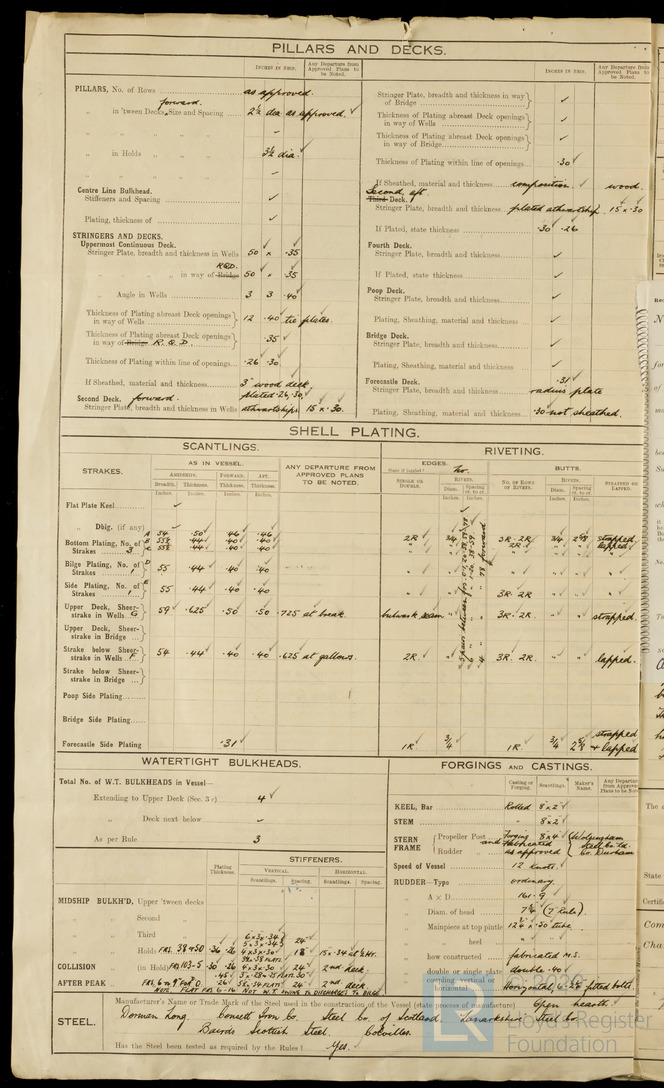 PILLARS AND DECKS.
INCHES IN SHIP.
Any Departure from Approved Plans to be Noted.
PILLARS, No. of Rows as approved.
forward.
„ in 'tween Decks, Size and Spacing 2½ dia as approved. ✓
„ „ „ „
„ in Holds „ 3½ dia. ✓
„ „ „ „
Centre Line Bulkhead.
Stiffeners and Spacing ✓
Plating, thickness of ✓
STRINGERS AND DECKS.
Uppermost Continuous Deck.
Stringer Plate, breadth and thickness in Wells 50 × .35
R.Q.D.
„ „ „ in way of Bridge 50 × .35
„ Angle in Wells 3 3 .40
Thickness of Plating abreast Deck openings in way of Wells 12 .40 tie plates.
Thickness of Plating abreast Deck openings in way of Bridge R.Q.D. .35
Thickness of Plating within line of openings .26 .30
If Sheathed, material and thickness 3" wood deck
Second Deck. forward. plated .26, .30
Stringer Plate, breadth and thickness in Wells athwartships 15 × .30.
INCHES IN SHIP.
Any Departure from Approved Plans to be Noted.
Stringer Plate, breadth and thickness in way of Bridge ✓
Thickness of Plating abreast Deck openings in way of Wells ✓
Thickness of Plating abreast Deck openings in way of Bridge ✓
Thickness of Plating within line of openings .30
If Sheathed, material and thickness composition. wood.
Second aft.
Third Deck.
Stringer Plate, breadth and thickness plated athwartship 15 × .30
If Plated, state thickness .30 .26
Fourth Deck.
Stringer Plate, breadth and thickness ✓
If Plated, state thickness ✓
Poop Deck.
Stringer Plate, breadth and thickness ✓
Plating, Sheathing, material and thickness ✓
Bridge Deck.
Stringer Plate, breadth and thickness ✓
Plating, Sheathing, material and thickness ✓
Forecastle Deck. .31
Stringer Plate, breadth and thickness radius plate
Plating, Sheathing, material and thickness .30 not sheathed.
SHELL PLATING.
SCANTLINGS.
RIVETING.
STRAKES.
AS IN VESSEL.
AMIDSHIPS. FORWARD. AFT.
Breadth. Thickness. Thickness. Thickness.
Inches. Inches. Inches. Inches.
ANY DEPARTURE FROM APPROVED PLANS TO BE NOTED.
EDGES.
State if joggled? No.
SINGLE OR DOUBLE.
RIVETS.
Diam. Spacing cr. to cr.
Inches. Inches.
BUTTS.
NO. OF ROWS OF RIVETS.
RIVETS.
Diam. Spacing cr. to cr.
Inches. Inches.
STRAPPED OR LAPPED.
Flat Plate Keel
„ Dblg. (if any) ✓
A 54 .50 .46 .46
Bottom Plating, No. of Strakes 3 B .44 .40 .40 2R 3/4 3R. 2R 3/4 strapped
C .44 .40 .40 2R lapped
Bilge Plating, No. of Strakes 1 D 55 .44 .40 .40
Side Plating, No. of Strakes 1 E 55 .44 .40 .40 3R. 2R
Upper Deck, Sheerstrake in Wells G 59 .625 .50 .50 .725 at break. bulwark seam 3R. 2R strapped.
Upper Deck, Sheerstrake in Bridge
Strake below Sheerstrake in Wells F 54 .44 .40 .40 .625 at gallows. 2R. 3R. 2R lapped.
Strake below Sheerstrake in Bridge
Poop Side Plating
Bridge Side Plating
strapped
Forecastle Side Plating .31 1R 3/4 1R. 3/4 + lapped
WATERTIGHT BULKHEADS.
Total No. of W.T. BULKHEADS in Vessel—
Extending to Upper Deck (Sec. 3 c) 4 ✓
„ Deck next below
As per Rule 3
Plating Thickness.
STIFFENERS.
VERTICAL. HORIZONTAL.
Scantlings. Spacing. Scantlings. Spacing.
MIDSHIP BULKH'D, Upper 'tween decks
„ Second „
„ Third „ 6 × 3 × .34 24
„ Holds
COLLISION „ (in Hold) 4 × 3 × .30 24 2nd deck
AFTER PEAK „ 24 2nd deck
FORGINGS AND CASTINGS.
Casting or Forging. Scantlings. Maker's Name. Any Departure from Approved Plans to be Noted
KEEL, Bar Rolled 8 × 2
STEM „ 8 × 2
STERN FRAME Propeller Post Forging 8 × 4 Wolsingham
and Fabricated Steel Co. Ld.
Rudder „ as approved Co. Durham
Speed of Vessel 12 knots.
RUDDER—Type ordinary
„ A × D 161.9
„ Diam. of head 7¼ (7 Rule)
„ Mainpiece at top pintle
„ „ heel „ „
„ how constructed fabricated M.S.
„ double or single plate double .40
Horizontal, fitted bolts.
STEEL.
Manufacturer's Name or Trade Mark of the Steel used in the construction of the Vessel (state process of manufacture) Open hearth.
Dorman Long. Consett Iron Co. Steel Co. of Scotland. Lanarkshire Steel Co.
Bairds Scottish Steel. Colvilles.
Has the Steel been tested as required by the Rules? Yes.
Lloyd's Register
Foundation